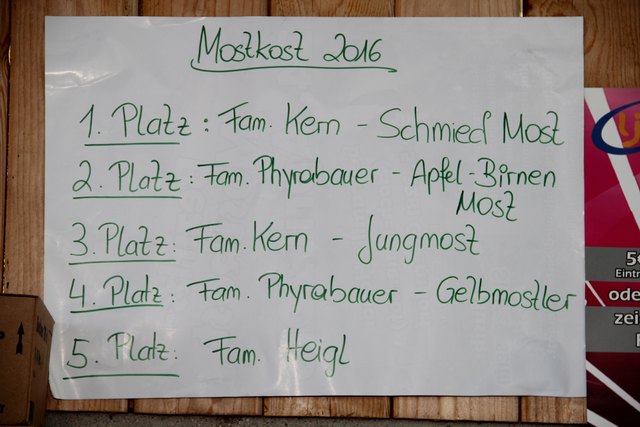 Mostkost 2016
1. Platz: Fam. Kern - Schmied Most
2. Platz: Fam. Phyrabauer - Apfel-Birnen
Most
3. Platz: Fam. Kern - Jungmost
4. Platz: Fam. Phyrabauer - Gelbmostler
5. Platz: Fam. Heigl
5€
Eintr
ode
zei